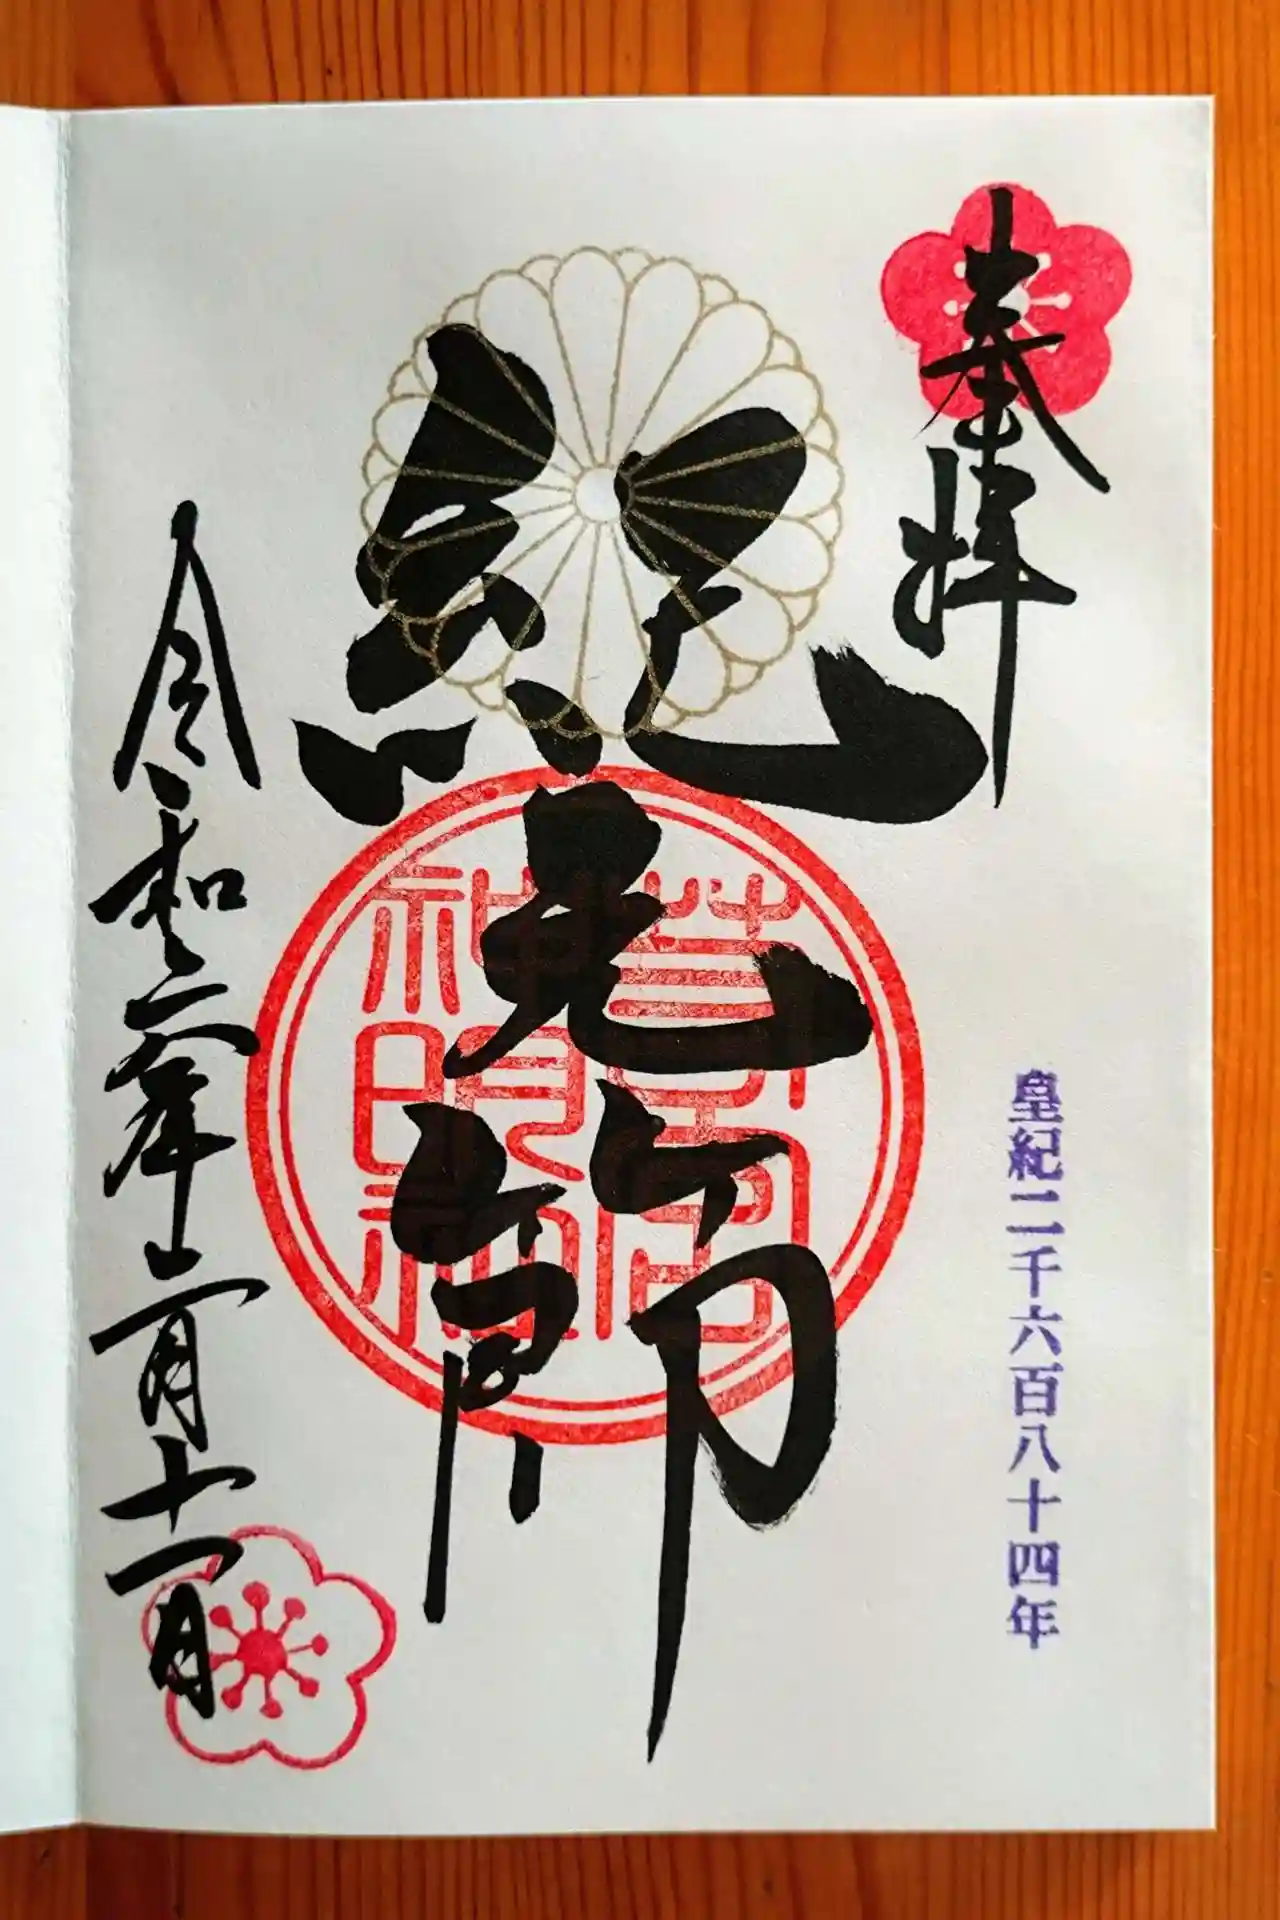 奉拝
皇紀二千六百八十四年
紀元節
神明社
令和六年二月十一日